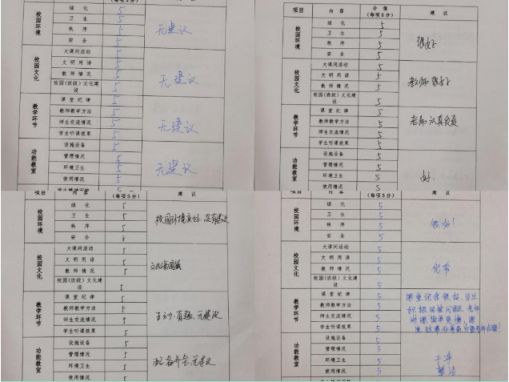 (每项5分)
校园环境
绿 化 5
卫 生 5
秩 序 5
安 全 5
无建议
校园文化
大课间活动 5
文 明 用 语 5
教 师 情 况 5
校园(班级)文化建设 5
无建议
教学环节
课 堂 纪 律 5
教师教学方法 5
师生交流情况 5
学生听课效果 5
无建议
功能教室
设施设备 5
管理情况 5
环境卫生 5
使用情况 5
无建议
项目 内 容 分 值 (每项5分) 建 议
校园环境
绿 化 5
卫 生 5
秩 序 5
安 全 5
很好
校园文化
大课间活动 5
文 明 用 语 5
教 师 情 况 5
校园(班级)文化建设 5
教师很好
教学环节
课 堂 纪 律 5
教师教学方法 5
师生交流情况 5
学生听课效果 5
老师认真负责
功能教室
设施设备 5
管理情况 5
环境卫生 5
使用情况 5
好
项目 内 容 (每项5分) 建 议
校园环境
绿 化 5
卫 生 5
秩 序 5
安 全
校园环境
校园文化
大课间活动 5
文 明 用 语 5
教 师 情 况 5
校园(班级)文化建设 5
教学环节
课 堂 纪 律 5
教师教学方法 5
师生交流情况
学生听课效果 5
无建议
功能教室
设施设备 5
管理情况 5
环境卫生 5
使用情况 5
内 容 (每项5分) 建 议
校园环境
绿 化 5
卫 生 5
秩 序 5
安 全 5
很好!
校园文化
大课间活动 5
文 明 用 语 5
教 师 情 况 5
校园(班级)文化建设 5
完美
教学环节
课 堂 纪 律 5
教师教学方法 5
师生交流情况 5
学生听课效果 5
课堂纪律很好
功能教室
设施设备 5
管理情况 5
环境卫生 5
使用情况 5
干净
整洁